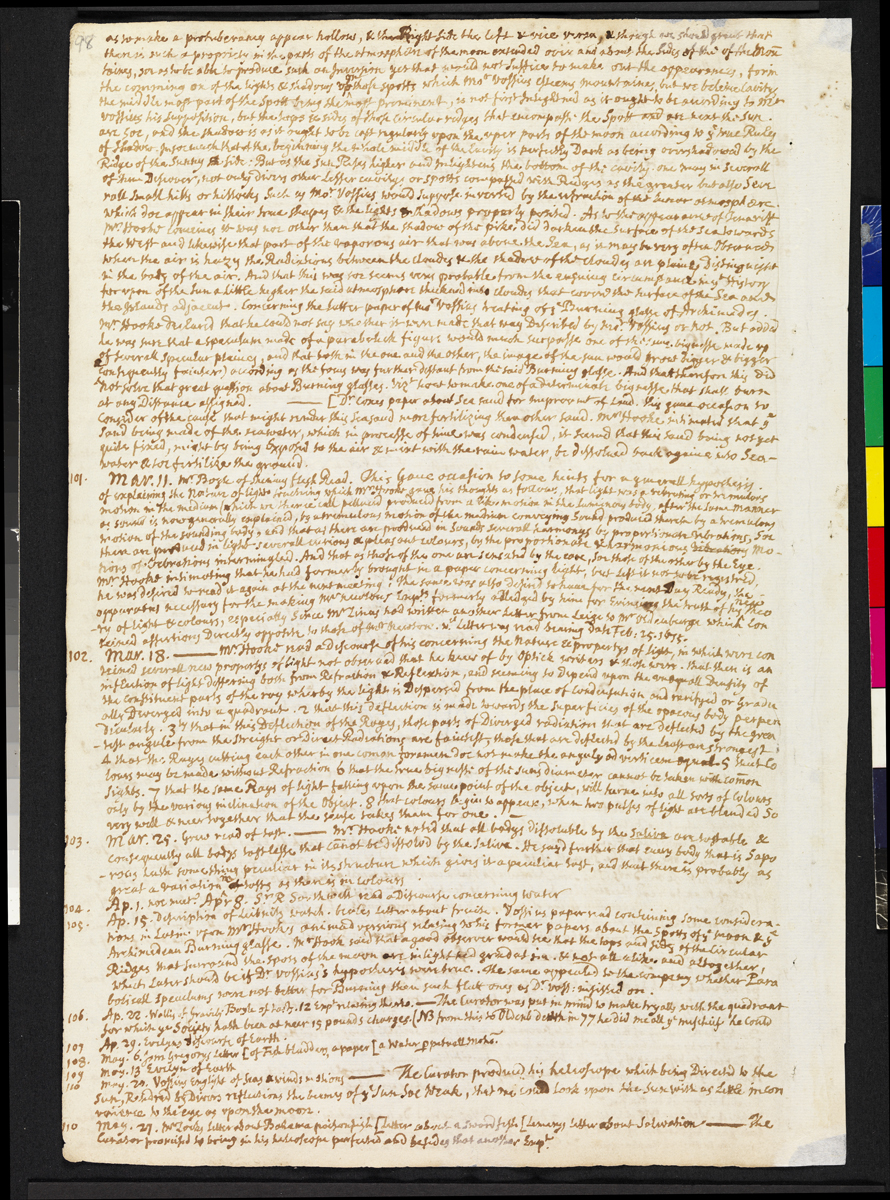 98
as to make a protuberancy appear hollow, & the Right side the left & vice versa, & though we should grant that
there is such a propriety in the parts of the atmosphere of the moon extended over and about the sides of the of the Moun
taines, soe as to be able to produce such an Inversion yet that would not suffice to make out the appearances, for in
the comming on of the lights & shadows upon those spotts which Mor Vossius esteems mountaines, but we beleive cavitys
the middle most part of the Spott being the most prominent, is not first Inlightned as it ought to be according to Mor
Vossius his Supposition, but the tops & sides of those circular ridges that encompasse the Spott and are next the sun
are soe, and the shadow is as it ought to be cast regularly upon the uper parts of the moon according to ye true Rules
of Shadow. Insoe much that at the beginning the whole middle of the Cavity is perfectly Dark as being overshadowed by the
Ridge of the Sunny side. But as the Sun Rises higher and Inlightens the bottom of the cavity. one may in severall
of them Discover, not only divers other lesser cavitys or spotts compassed with Ridges as the greater but also Seve
rall small hills or hillocks Such as Mor. Vossius would suppose inversed by the refraction of the Lunar atmosphære.
which doe appear in their true shapes & the lights & shadows properly posited. As to the appearance of Teneriff
Mr. Hooke conceives it was noe other than that the shadow of the pike did darken the surface of the Sea towards
the West and likewise that part of the vaporous air that was above the Sea, as it may be very often Observed
when the air is hazy the Radiations between the cloudes & the shadow of the cloudes are plainly Distinguisht
in the body of the air. And that this was soe seems very probable from the ensuing circumstance in ye History
for upon the Sun a little higher the said atmosphere thickend into cloudes that coverd the surface of the Sea and
the Islands adjacent. Concerning the latter paper of this Vossius treating of ye Burning glasse of Archimedes.
Mr. Hooke declared that he could not say whether it were made that way Described by Mor. Vossius or not. But added
he was sure that a speculum made of a parabolick figure would much surpasse one of the same. bignesse made up
of severall specular plaines, and that both in the one and the other, the image of the sun would grow bigger & bigger
consequently fainter) according as the focus was further distant from the said Burning glasse. And that therefore this did
not solve that great question about Burning glasses. Vizt how to make one of a determinate bignesse that shall burn
at any Distance assigned. ——— [Dr. Coxes paper about Sea sand for Improvmt of Land. This gave occasion to
consider of the cause that might render this sea sand more fertilizing then other sand. Mr. Hooke intimated that ye
sand being made of the sea water, which in processe of time was condensed, it seemd that this sand being not yet
quite fixed, might by being Exposed to the air & mixt with the rain water, be dissolved back againe into Sea-
water & soe fertilize the ground.
101. Mar. 11. Mr. Boyle of shining flesh Read. This Gave occasion to some hints for a generall hypothesis
of explaining the nature of light touching which Mr. Hooke gave his thoughts as follows, that light was a vibrating or tremulous
motion in the medium (which we therefore call pellucid) produced from a like motion in the luminous body, after the same manner
as sound is now generally explained, by a tremulous motion of the medium conveying Sound produced therein by a tremulous
motion of the sounding body, and that as there are produced in sounds severall harmonys by proportionate vibrations, Soe
there are produced in light severall curious & pleasant colours, by the proportionate & harmonious vibrations Mo-
tions of Vebrations intermingled. And that as those of the one are sensated by the eare, soe those of the other by the Eye.
Mr Hooke intimating that he had formerly brought in a paper concerning light, but left it not to be registred,
he was desired to read it again at the next meeting. The same was also desired to have for the next Day Ready, the
apparatus necessary for the making Mr. newtons Expts formerly alledged by him for Evincing the truth of his new Theo
-ry of light & colours, especially since Mr Linus had written another letter from Leige to Mr Oldenburge which Con
teined assertions Directly opposite to those of Mr Newton. wt letter was read bearing Date Feb. 25. 1675.
102. Mar. 18. ——— Mr. Hooke read a discourse of his concerning the Nature & propertys of light, in which were con
teined severall new propertys of light not observed that he knew of by Optick writers & those were. That ther is an
inflection of light differing both from Refraction & Reflexion, and seeming to Depend upon the unequall Density of
the constituent parts of the ray wherby the light is Dispersed from the place of condensation and rarifyed or gradu
ally Diverged into a quadrant. 2 that this deflection is made towards the superficies of the opacous body perpen
dicularly. 3ly that in this Deflection of the Rayes, those parts of Diverged radiation that are deflected by the grea
-test angule from the streight or direct Radiations are faintest, those that are deflected by the least are strongest.
4 that the Rayes cutting each other in one comon foramen doe not make the angules ad verticem equal. 5 that Co
lours may be made without Refraction 6 that the true bignesse of the suns diameter cannot be taken with common
sights. 7 that the same Rays of light falling upon the same point of the object, will turne into all sorts of Colours
only by the various inclination of the object. 8 that colours begin to appeare, when two pulses of light are blended so
very well & neer together that the sense takes them for one.
103. Mar. 25. Grew read of tast. ——— Mr. Hooke noted that all bodys dissoluble by the Saliva are tastable &
consequently all bodys tastlesse that cannot be dissolvd by the saliva. He sayd further that every body that is sapo
-rous hath something peculiar in its structure which gives it a peculiar tast, and that there is probably as
great a variation of tasts as there is in colours.
104. Ap. 1. noe met. Apr 8. Sr. R Southwell read a Discourse concerning water
105. Ap. 15. Description of Leibnitz watch. Beales letter about fruise. Vossius paper read containing some considera-
tions in Latine upon Mr Hooks animadversions relating to his former papers about the Spotts of ye moon & ye
Archimedean Burning glasse. Mr Hook said that a good observer would see that the tops and sides of the circular
Ridges that surround the spots of the moon are inlightned gradatim. & not all alike and altogether,
which latter should be if Dr Vossius's hypothesis were true. He same appealed to the company whether Para
bolicall speculums were not better for Burning then such flat ones as Dr. Voss: insisted on.
106. Ap. 22. Wallis of Gravity Boyle of tasts. 12 Exps relating thereto. — The Curator was put in mind to make tryalls with the quadrant
for which ye Society hath been at neer 15 pounds charges. (NB from this to Oldenb death in 77 he did me all ye mischeif he could
107 Ap. 29. Evelyns discourse of Earth.
108. May. 6. Jam Gregorys letter [of Fish bladders, a paper [a water perpetuall motn.
109 May. 13 Evelyn of Earth
110 May. 20. Vossius English of Seas & winds motions ——— The Curator produced his helioscope which being Directed to the
Sun, Rendred by Divers reflections the beames of ye Sun soe Weak, that one could look upon the Sun with as Little incon
venience to the eye as upon the moon.
110 May. 27. Mr Locks letter about Bahama poison fish [letter about a sword fish [Leuweng letter about Salivation ——— The
Curator promised to bring in his helioscope perfected and besides that another Expt.